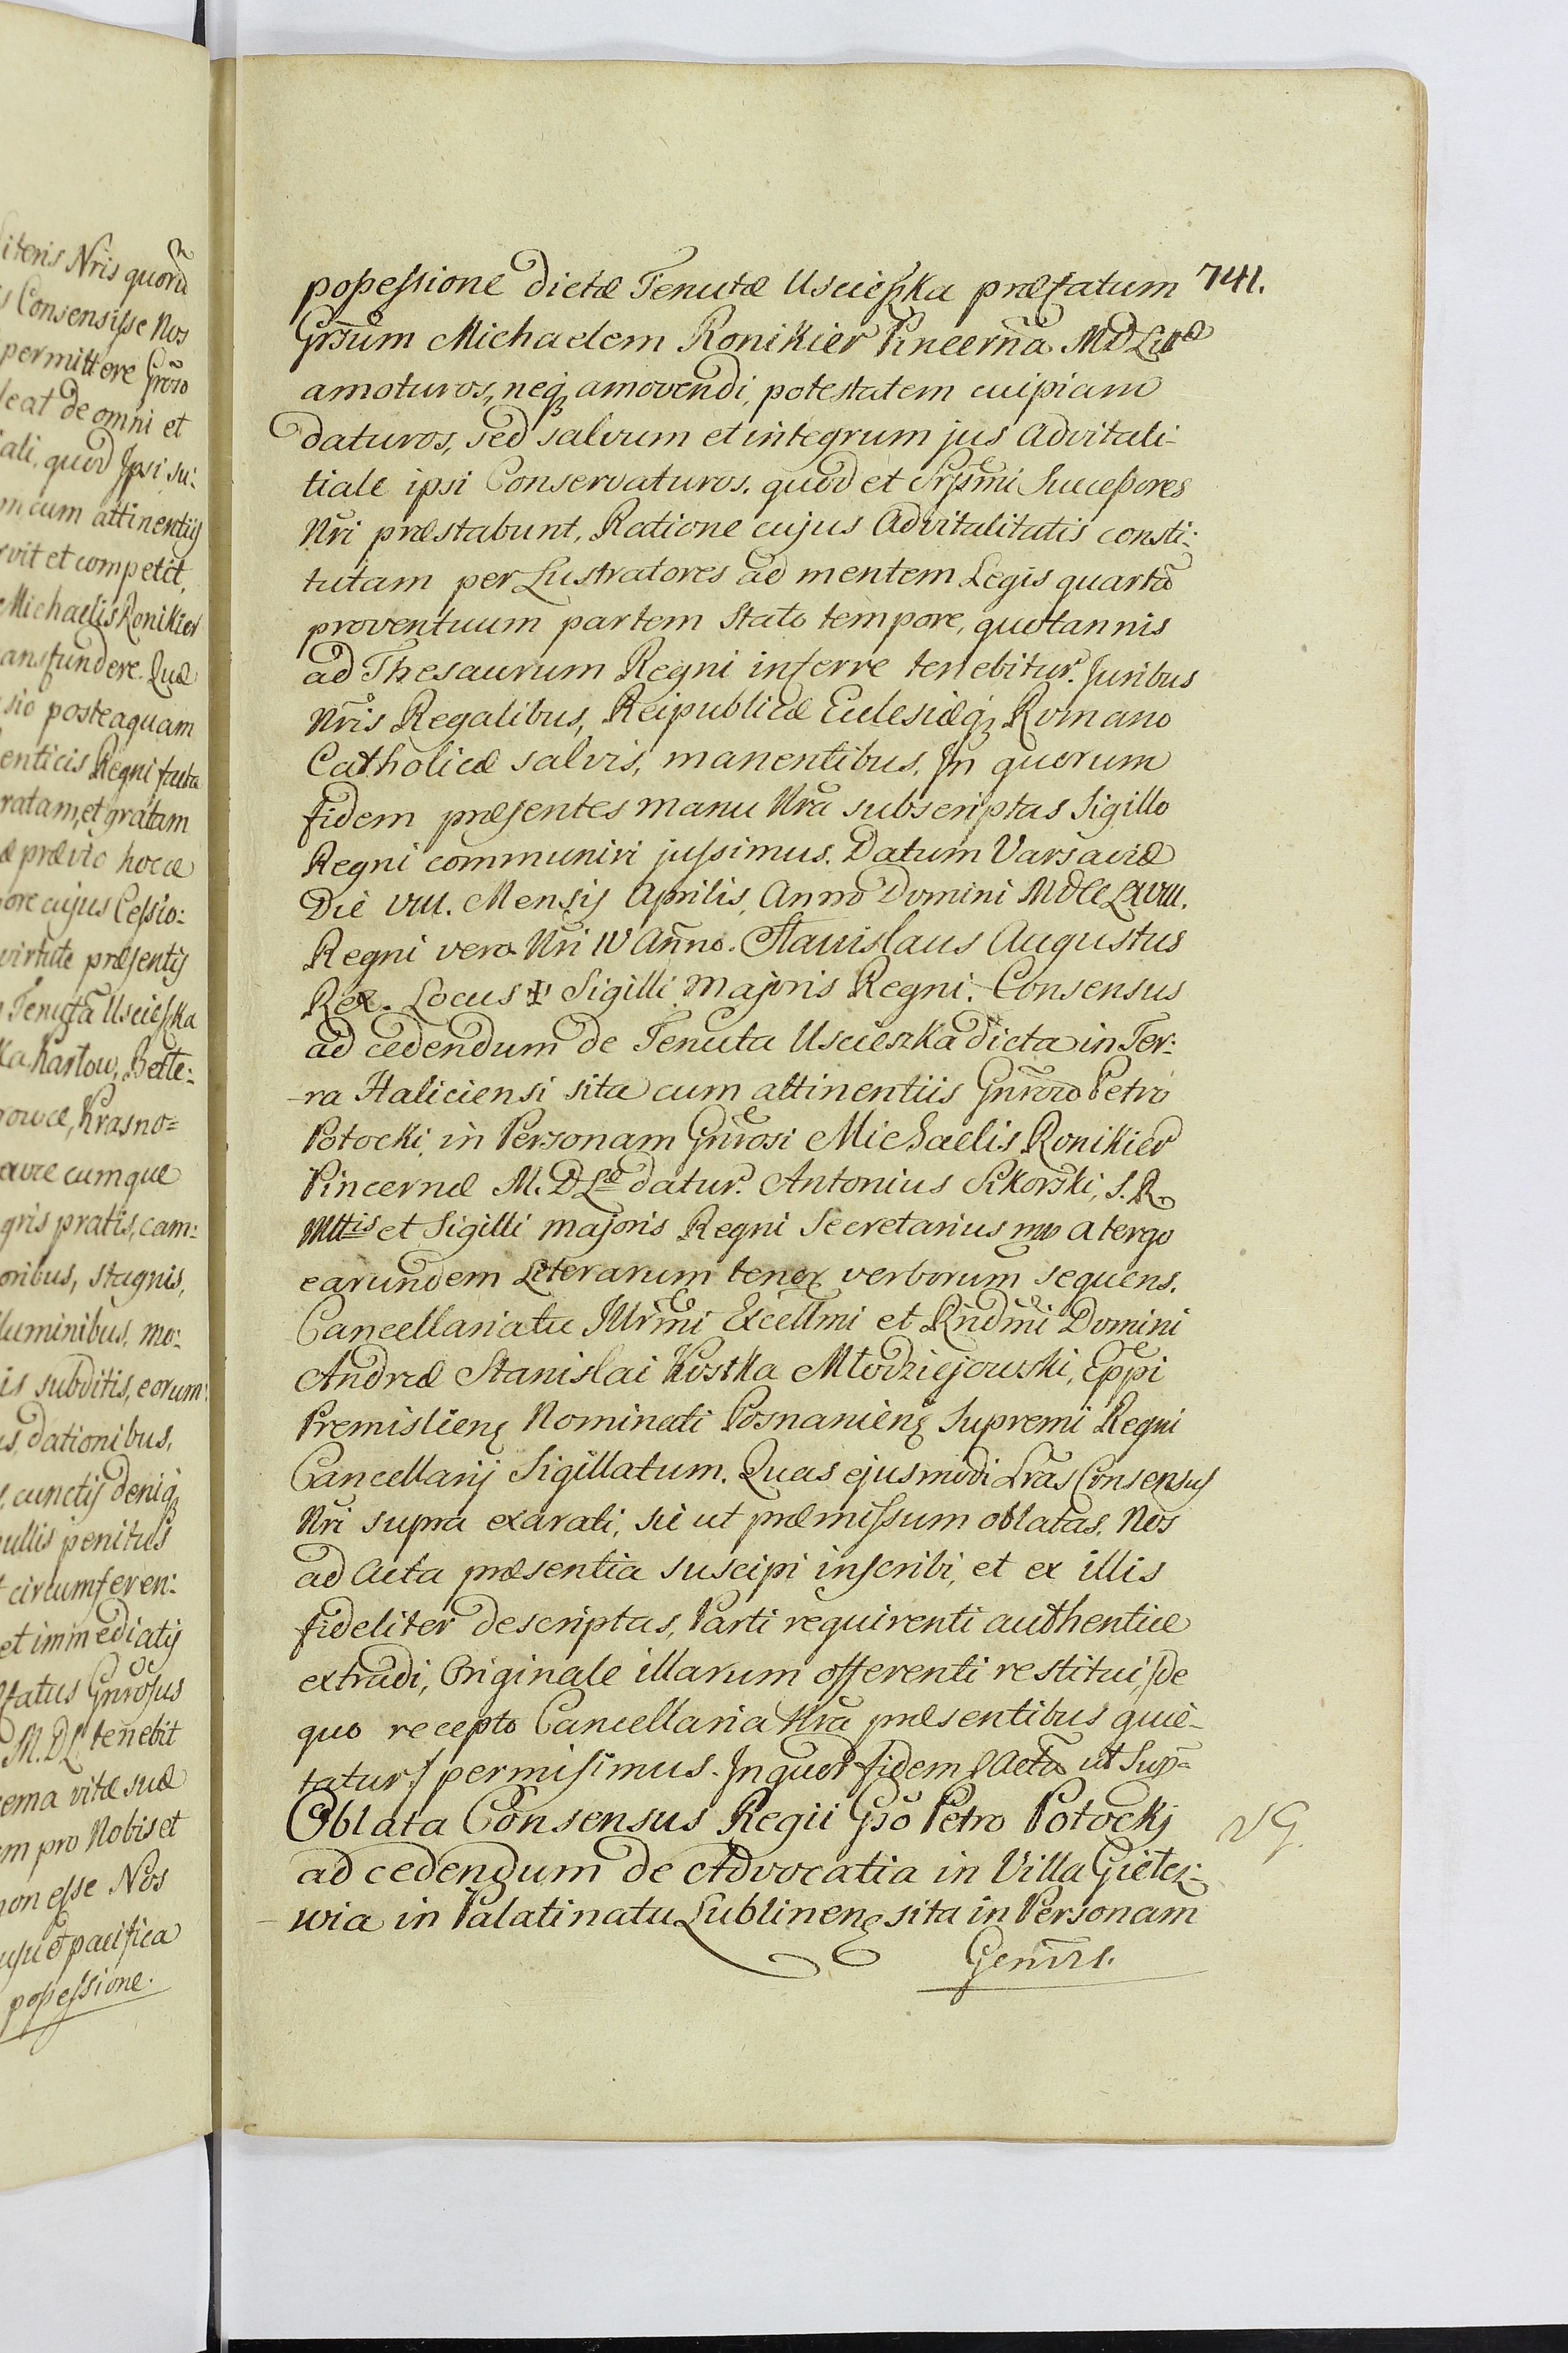 iteris Nris quorũ
s Consensisse Nos
permittere Gnrõso
leat de omni et
ali, quod Ipsi su:
m cum attinentijs
rvit et competit,
Michaelis Ronikier
ansfundere. Quæ
sio posteaquam
enticis Regni facta
ratam, et gratam
æ prævio hocce
ore cujus Cessio:
virtute præsentis
Tenutã Uscieszka
ka Karlow, Bette:
owce, Krasno=
cumque
gris pratis, cam:
oribus, stagnis,
luminibus, mo:
is subditis, eorum:
s, dationibus,
s, cunctis deniq3
nullis penitus
t circumferen:
et immediatis
fatus Gnrõsus
M. D. L. tenebit
rema vitæ suæ
em pro Nobis et
non esse Nos
usu et pacifica
possessione.
741.
possessione dictæ Tenutæ Uscieszka præfatum
Grsum Michaelem Ronikier Pincernã M D Litt
amoturos, neq3 amovendi, potestatem cuipiam
daturos, sed salvum et integrum jus Advitali-
tiale ipsi Conservaturos. quod et Srssmi Successores
Nri præstabunt, Ratione cujus Advitalitatis consti:
tutam per Lustratores ad mentem Legis quartã
proventuum partem stato tempore, quottannis
ad Thesaurum Regni inferre tenebitur. Juribus
Nris Regalibus, Reipublicæ Eclesiæq3 Romano
Catholicæ salvis, manentibus. In quorum
fidem præsentes manu Nrã subscriptas Sigillo
Regni communiri jussimus. Datum Varsaviæ
Die VIII. Mensis Aprilis, Anno Domini MDCCLXVIII.
Regni vero Nri IV Anno. Stanislaus Augustus
Rex. Locus ✠ Sigilli Majoris Regni. Consensus
ad cedendum de Tenuta Uscieszka dicta in Ter:
-ra Haliciensi sita cum attinentiis Gnrõso Petro
Potocki, in Personam Gnrosi Michaelis Ronikier
Pincernæ M. D. Læ datur. Antonius Sikorski, S. R.
Mttis et Sigilli majoris Regni Secretarius mp a tergo
earundem Literarum tenor verborum sequens.
Cancellariatu Illrmi Excellmi et Rndmi Domini
Andreæ Stanislai Kostka Młodziejowski, Eppi
Premislien3 Nominati Posnanien3 Supremi Regni
Cancellarij Sigillatum. Quas ejusmodi Lrãs Consensus
Nri supra exarati, sic ut præmissum oblatas. Nos
ad Acta præsentia suscipi inscribi, et ex illis
fideliter descriptas, Parti requirenti authentice
extradi, Originale illarum offerenti restitui, /de
quo recepto Cancellaria Nrã præsentibus quie-
tatur:/ permisimus. In quor fidem & Actã ut Sup=
Oblata Consensus Regii Gso Petro Potockj
ad cedendum de Advocatia in Villa Gielcz:
-wia in Palatinatu Lublinen3 sita in Personam
Genrsi.